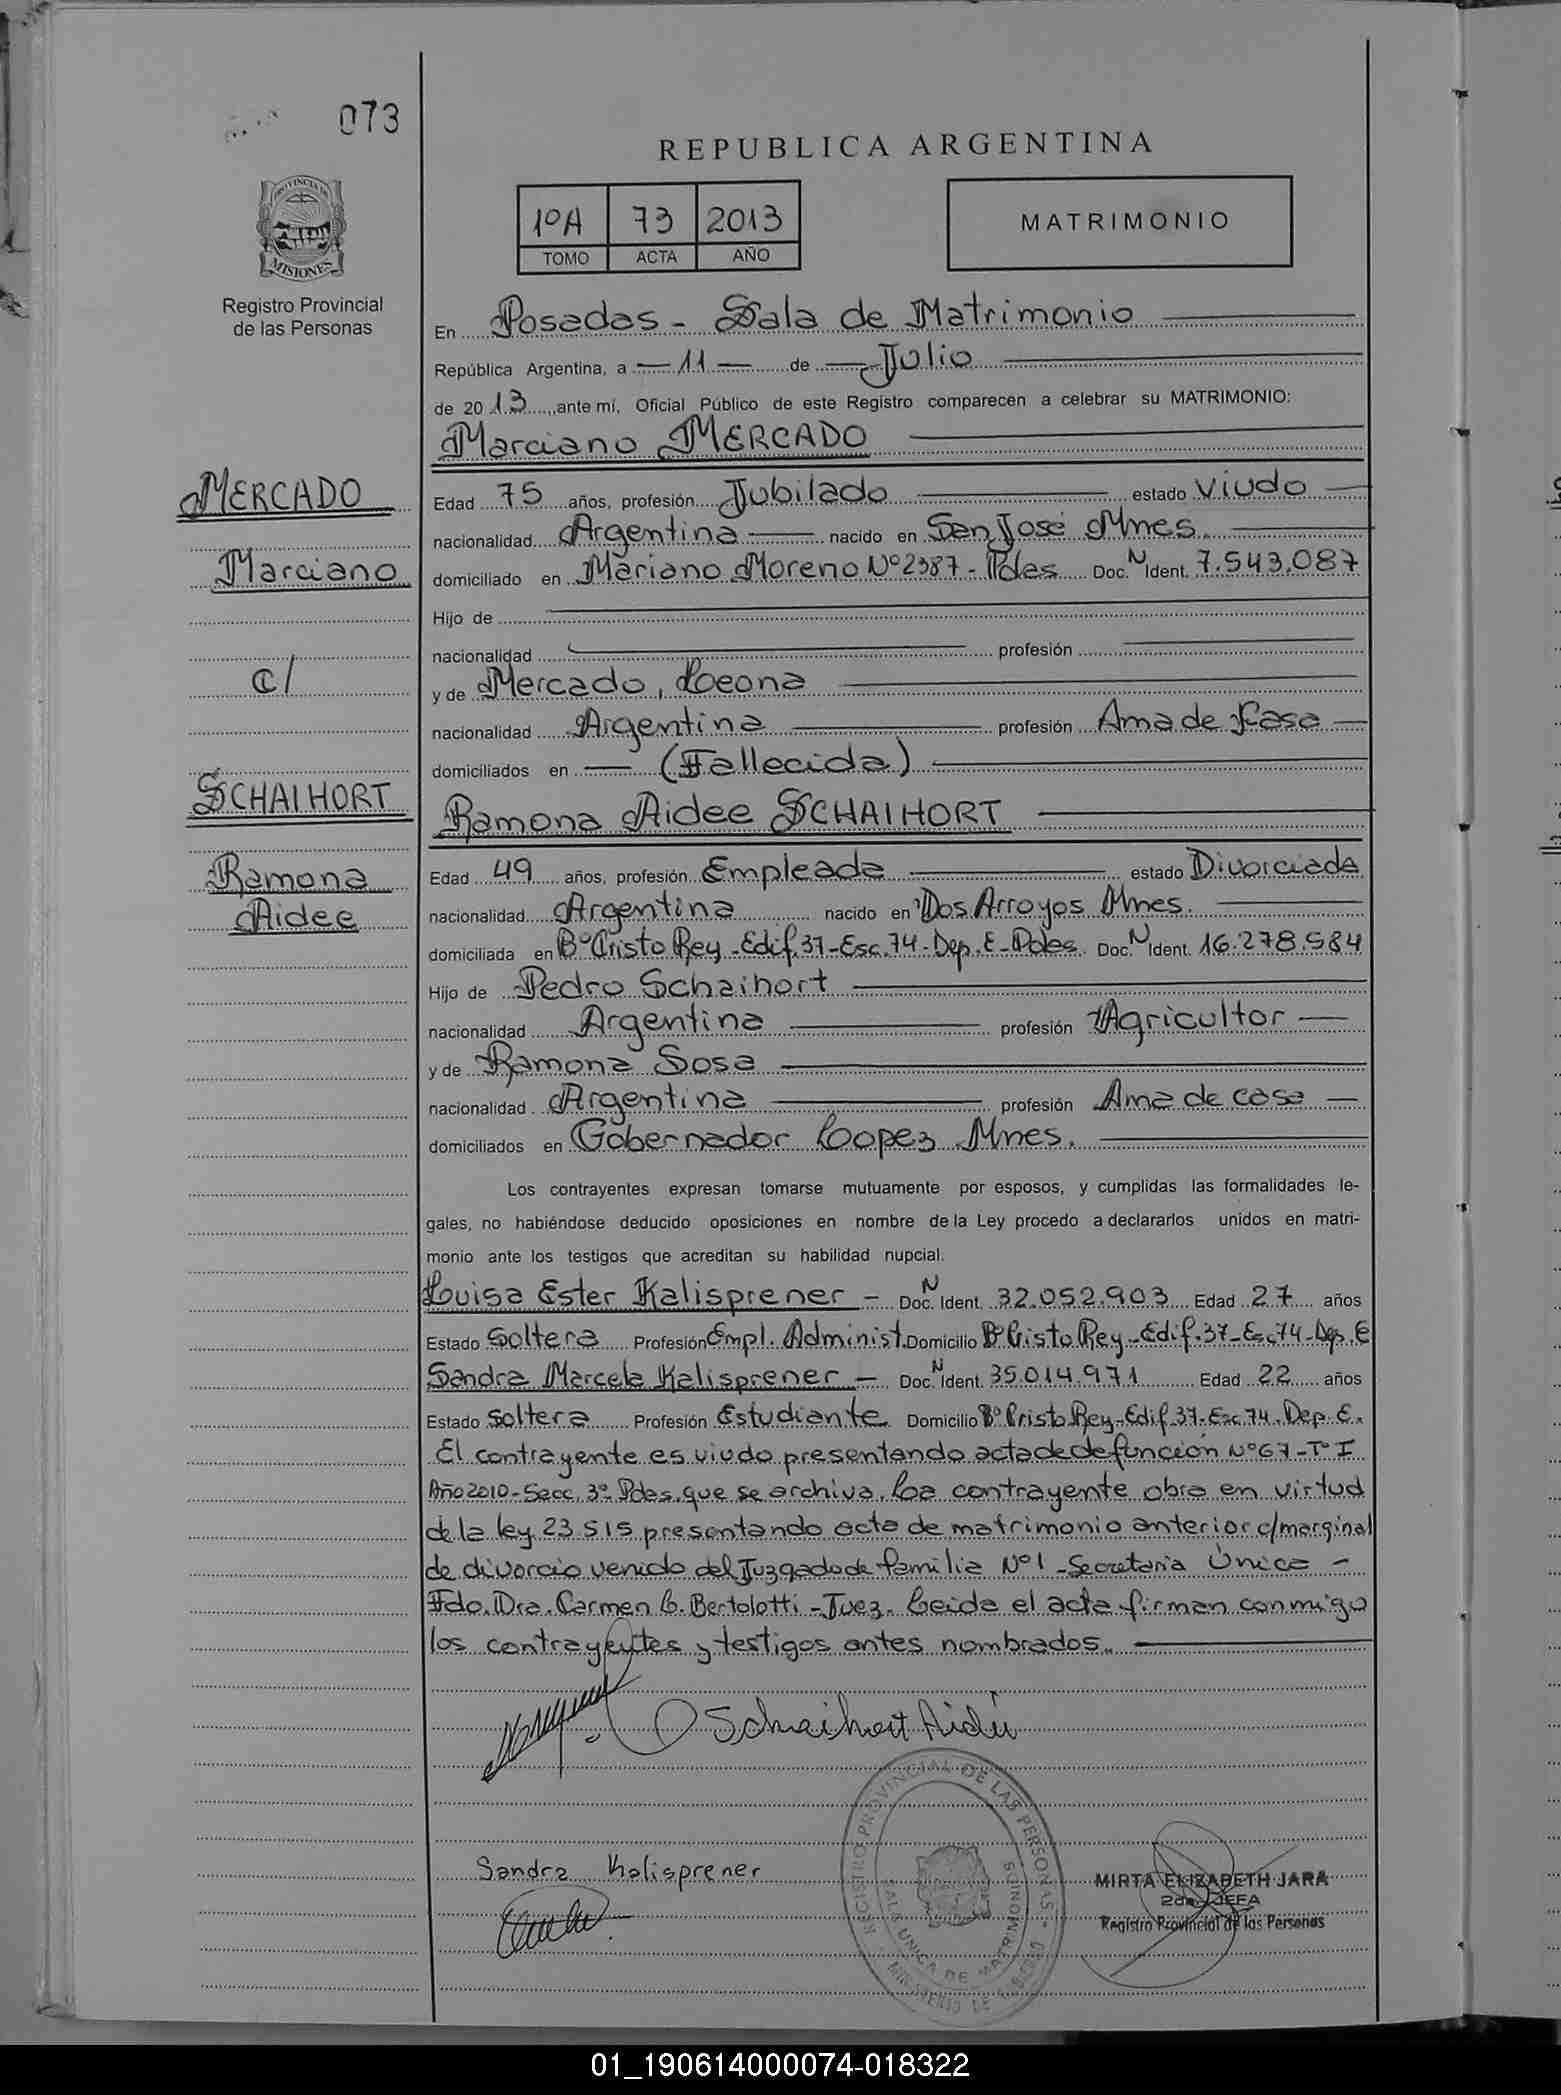 073
REPUBLICA ARGENTINA
PROVINCIA DE
MISIONES
Registro Provincial
de las Personas
1ºA 73 2013
TOMO ACTA AÑO
MATRIMONIO
En Posadas - Sala de Matrimonio
República Argentina, a 11 de Julio
de 2013, ante mí, Oficial Público de este Registro comparecen a celebrar su MATRIMONIO:
Marciano MERCADO
MERCADO
Marciano
c/
SCHAIHORT
Ramona
Aidee
Edad 75 años, profesión Jubilado estado Viudo
nacionalidad Argentina nacido en San José Mnes.
domiciliado en Mariano Moreno Nº 2387 - Pdas Doc. N Ident. 7.543.087
Hijo de
nacionalidad profesión
y de Mercado, Leona
nacionalidad Argentina profesión Ama de Casa
domiciliados en (Fallecida)
Ramona Aidee SCHAIHORT
Edad 49 años, profesión Empleada estado Divorciada
nacionalidad Argentina nacido en Dos Arroyos Mnes.
domiciliada en Bº Cristo Rey - Edif. 37 - Esc. 74 - Dep. E - Pdas. Doc. N Ident. 16.278.584
Hijo de Pedro Schaihort
nacionalidad Argentina profesión Agricultor
y de Ramona Sosa
nacionalidad Argentina profesión Ama de casa
domiciliados en Gobernador Lopez Mnes.
Los contrayentes expresan tomarse mutuamente por esposos, y cumplidas las formalidades le-
gales, no habiéndose deducido oposiciones en nombre de la Ley procedo a declararlos unidos en matri-
monio ante los testigos que acreditan su habilidad nupcial.
Luisa Ester Kalisprener - Doc. N Ident. 32.052.903 Edad 27 años
Estado Soltera Profesión Empl. Administ. Domicilio Bº Cristo Rey - Edif. 37 - Esc 74 - Dep. E
Sandra Marcela Kalisprener - Doc. N Ident. 35.014.971 Edad 22 años
Estado Soltera Profesión Estudiante Domicilio Bº Cristo Rey - Edif. 37 - Esc. 74 - Dep. E.
El contrayente es viudo presentando acta de defunción Nº 67 - Tº I
Año 2010 - Secc. 3º Pdas. que se archiva. La contrayente obra en virtud
de la ley 23.515 presentando acta de matrimonio anterior c/marginal
de divorcio venido del Juzgado de familia Nº 1 - Secretaria Única -
Fdo. Dra. Carmen C. Bertolotti - Juez. Leida el acta firman conmigo
los contrayentes y testigos antes nombrados.
Schaihort Aidee
Sandra Kalisprener
REGISTRO PROVINCIAL DE LAS PERSONAS
SALA UNICA DE MATRIMONIOS
MINISTERIO DE GOBIERNO
MIRTA ELIZABETH JARA
2da. JEFA
Registro Provincial de las Personas
01_190614000074-018322